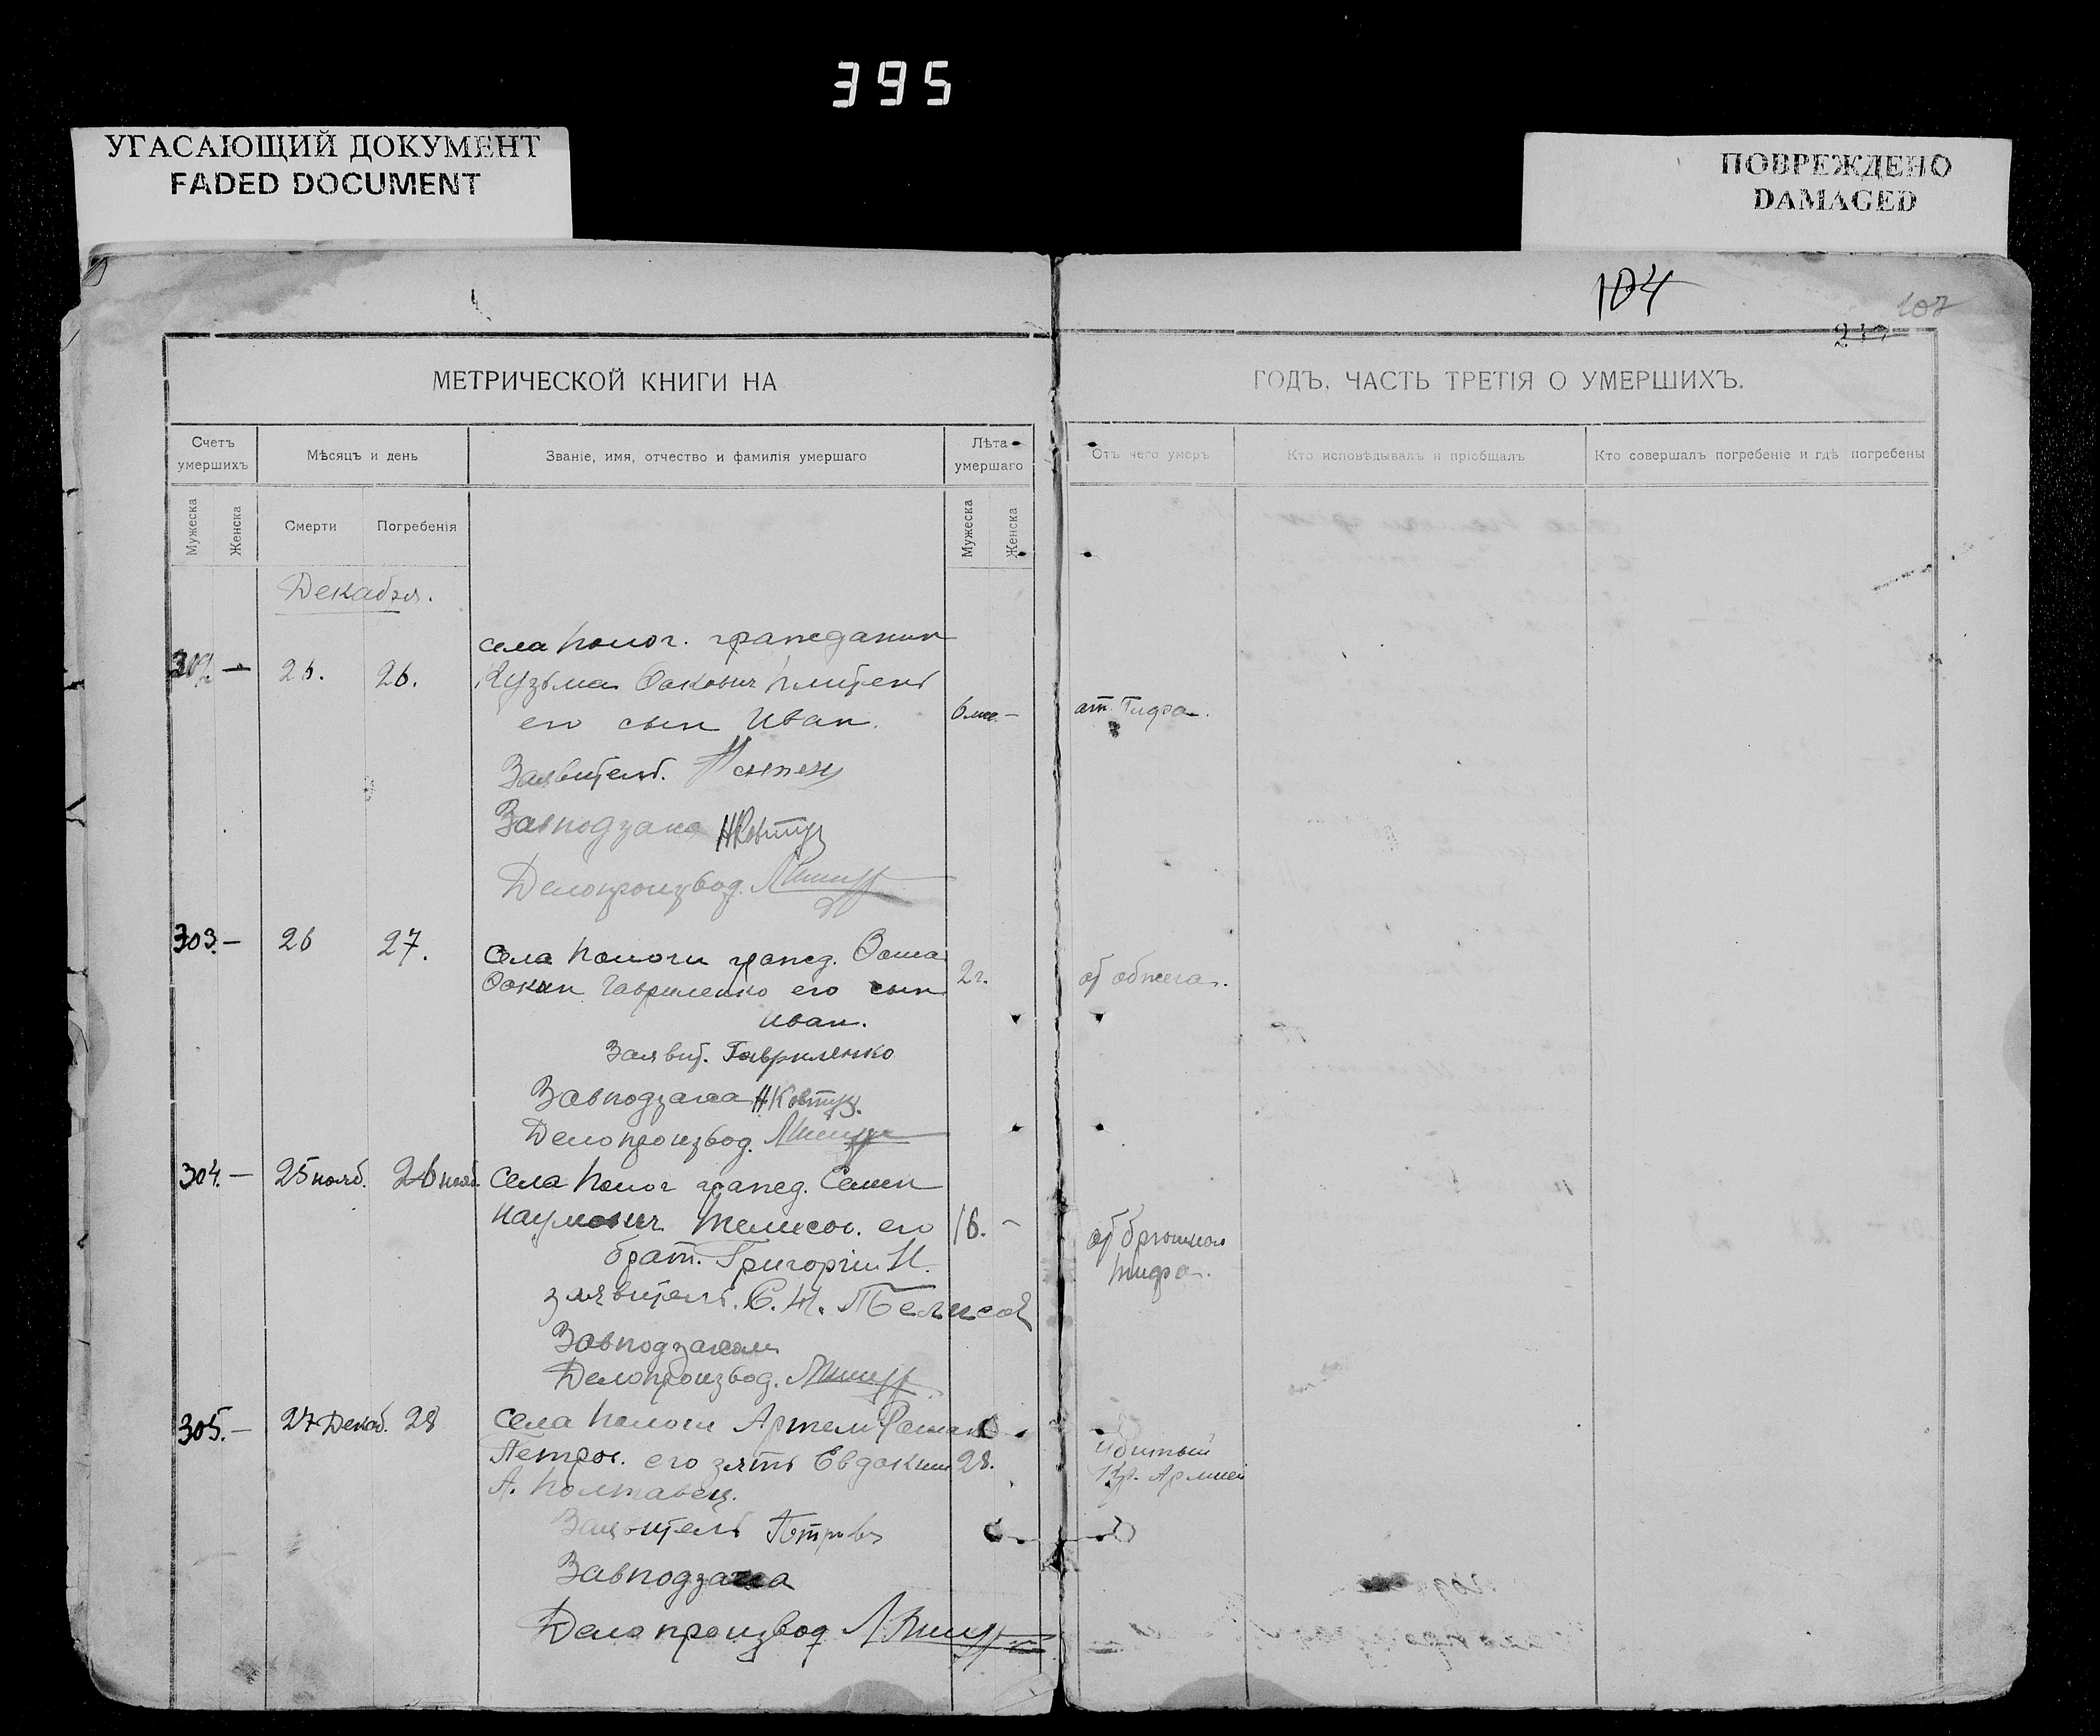 395
УГАСАЮЩИЙ ДОКУМЕНТ
FADED DOCUMENT
ПОВРЕЖДЕНО
DAMAGED
104
107
МЕТРИЧЕСКОЙ КНИГИ НА
ГОДЪ, ЧАСТЬ ТРЕТІЯ О УМЕРШИХЪ.
Счетъ умершихъ
Мѣсяцъ и день
Званіе, имя, отчество и фамилія умершаго
Лѣта умершаго
Отъ чего умеръ
Кто исповѣдывалъ и пріобщалъ
Кто совершалъ погребеніе и гдѣ погребены
Мужеска
Женска
Смерти
Погребенія
Мужеска
Женска
Декабря.
села Полог. гражданин
302 — 26. 26. Кузьма
его сын Иван. 6 от Тифа.
Заявитель.
Завподзагса НКовтун
Делопроизвод.
303. — 26 27. Села Пологи гражд. Фома
Гавриленко его сын 2 г. от обжега.
Иван.
Заявит. Гавриленко
Завподзагса НКовтун
Делопроизвод.
304. — 25 нояб. 26 нояб. Села Полог гражд. Семен
Наумович его 16. - от брюшного
брат. Григорий Н. тифа.
заявитель. С. Н.
Завподзагсом
Делопроизвод.
305. — 27 Декаб. 28 Села Пологи Артем Роман
Петров. его зять Евдоким 28. Убитый
А. Полтавец. Кр. Армией
Заявитель Петров
Завподзагса
Делопроизвод